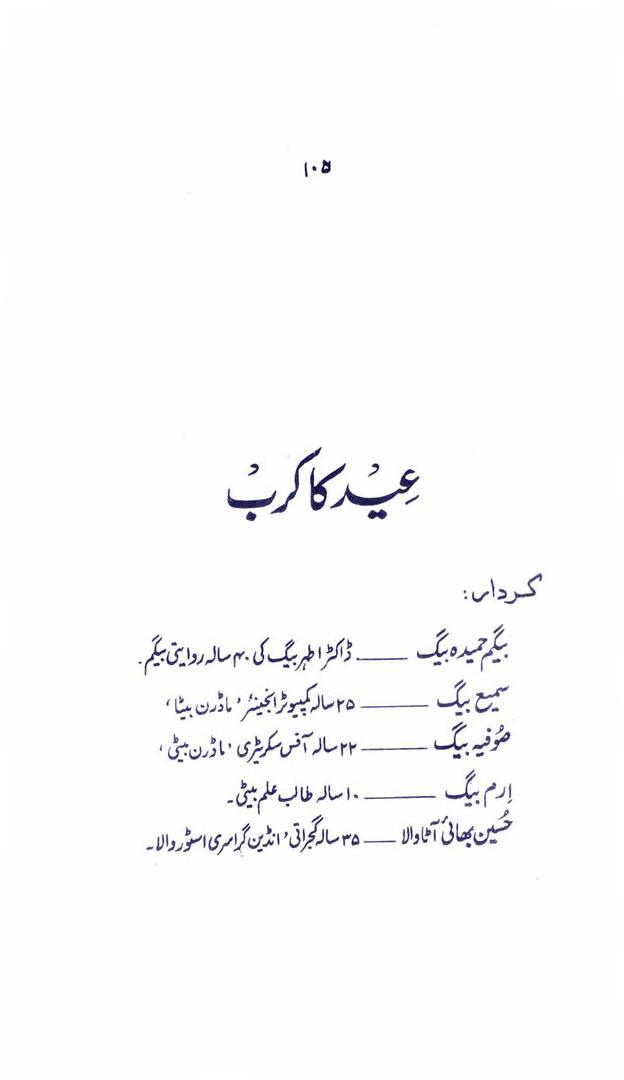 ۱۰۵
عِیْد کا کَرْب
کردار:
بیگم حمیدہ بیگ ــــــ ڈاکٹر اطہر بیگ کی ۴۰ سالہ روایتی بیگم۔
سمیع بیگ ــــــ ۲۵ سالہ کمپیوٹر انجینئر، ماڈرن بیٹا،
صُوفیہ بیگ ــــــ ۲۲ سالہ آفس سکریٹری، ماڈرن بیٹی،
اِرم بیگ ــــــ ۱۰ سالہ طالب علم بیٹی۔
حُسین بھائی آٹا والا ــــــ ۳۵ سالہ گجراتی، انڈین گراسری اسٹور والا۔